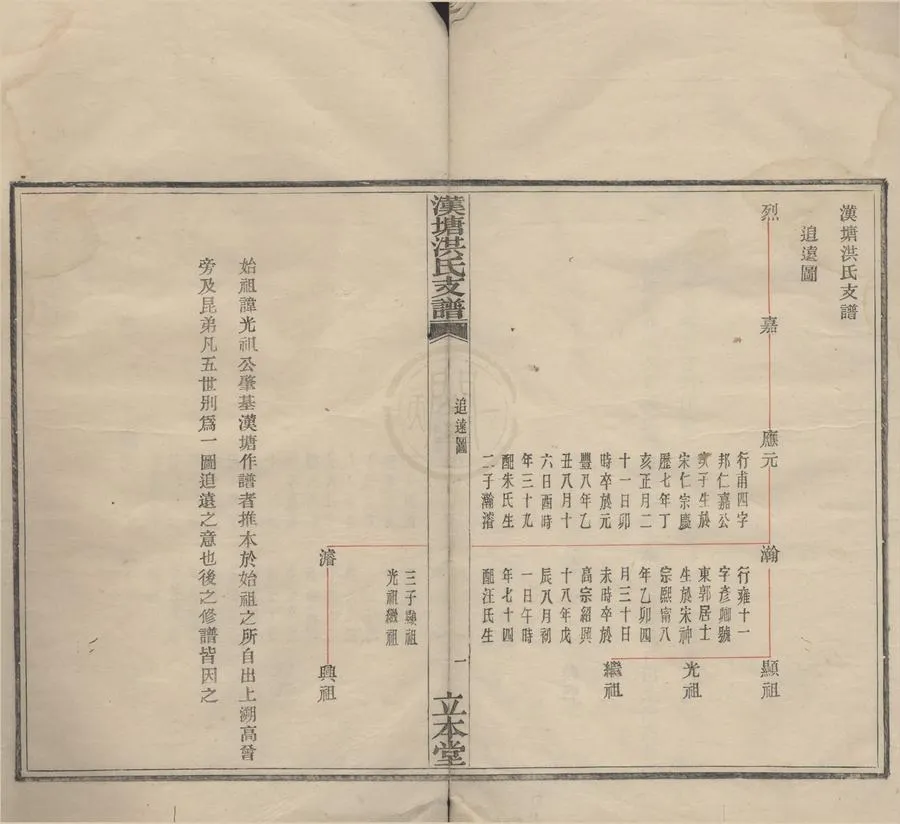 漢塘洪氏支譜
追遠圖
烈
嘉
應元
行甫四字
邦仁嘉公
子生於
宋仁宗慶
歷七年丁
亥正月二
十一日卯
時卒於元
豐八年乙
丑八月十
六日酉時
年三十九
配朱氏生
二子瀚濬
瀚
行雍十一
字彥卿號
東郭居士
生於宋神
宗熙甯八
年乙卯四
月三十日
未時卒於
高宗紹興
十八年戊
辰八月初
一日午時
年七十四
配汪氏生
三子顯祖
光祖繼祖
顯祖
光祖
繼祖
漢塘洪氏支譜
追遠圖
一
立本堂
濬
興祖
始祖諱光祖公肇基漢塘作譜者推本於始祖之所自出上溯高曾
旁及昆弟凡五世別爲一圖追遠之意也後之修譜皆因之